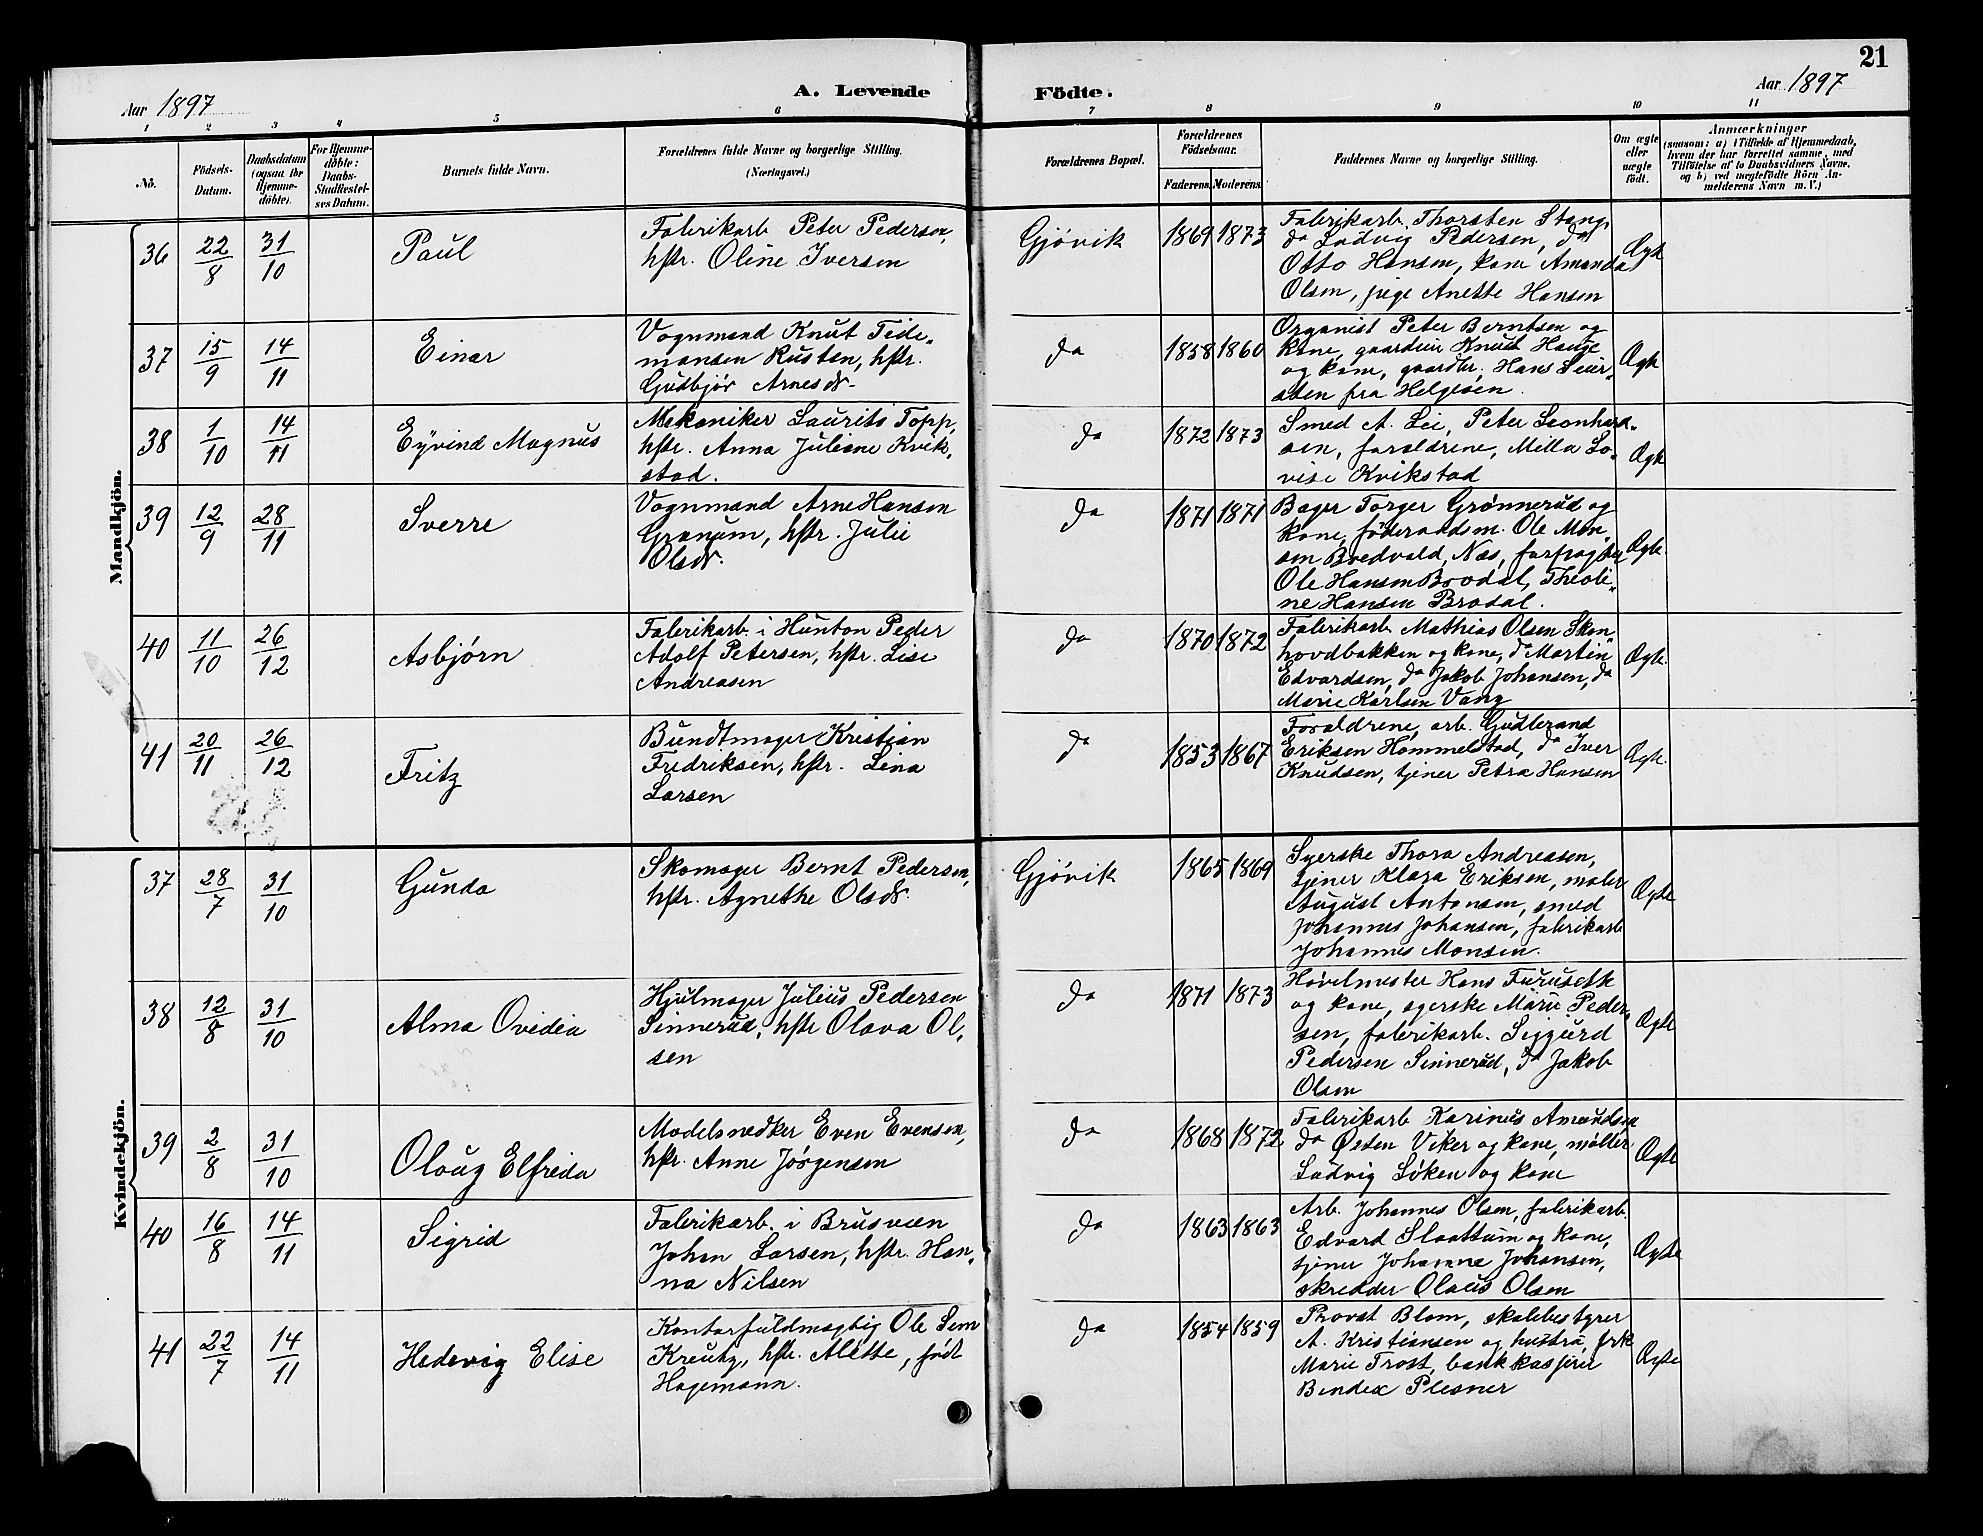 21
Aar 1897
A. Levende
Födte.
Aar 1897
1 2 3 4 5 6 7 8 9 10 11
No.
Födsels-
Datum.
Daabsdatum
(ogsaa for
Hjemme-
döbte).
For Hjemme-
döbte:
Daabs-
Stadfæstel-
ses Datum.
Barnets fulde Navn.
Forældrenes fulde Navne og borgerlige Stilling.
(Næringsvei.)
Forældrenes Bopæl.
Forældrenes
Födselsaar.
Faderens. Moderens.
Faddernes Navne og borgerlige Stilling.
Om ægte
eller
uægte
födt.
Anmærkninger
(saasom: a) i Tilfælde af Hjemmedaab,
hvem der har forrettet samme, med
Tilföielse af to Daabsvidners Navne,
og b) ved uægtefödte Börn An-
melderens Navn m. V.)
Mandkjön.
36 22/8 31/10 Paul
Fabrikarb. Peter Pedersen,
hstr. Oline Iversen
Gjøvik 1869 1873
Fabrikarb. Thorsten Stang,
do Ludvig Pedersen, do
Otto Hansen, kone Amanda
Olsen, pige Anette Hansen
Ægte
37 15/9 14/11 Einar
Vognmand Knut Tide-
mansen Rusten, hstr.
Gudbjør Arnesdr.
da 1858 1860
Organist Peter Berntsen og
kone, gaardeier Knut Hauge
og kone, gaardbr. Hans Seier-
sten fra Helgøen.
Ægte
38 1/10 14/11 Eyvind Magnus
Mekaniker Laurits Topp,
hstr. Anna Juliane Kvik-
stad.
da 1872 1873
Smed A. Lei, Peter Leonhard-
sen, forældrene, Milla Lo-
vise Kvikstad
Ægte
39 12/9 28/11 Sverre
Vognmand Arne Hansen
Granum, hstr. Julie
Olsdr.
da 1871 1871
Bager Torger Grønnerud og
kone, føderaadsm. Ole Mon-
sen Bredvold, Næs,
Ole Hansen Brodal, Theoli-
ne Hansen Brodal.
Ægte.
40 11/10 26/12 Asbjørn
Fabrikarb. i Hunton Peder
Adolf Petersen, hstr. Lise
Andreasen
da 1870 1872
Fabrikarb. Mathias Olsen Skon-
hovdbakken og kone, do Martin
Edvardsen, do Jakob Johansen, do
Marie Karlsen Vang
Ægte.
41 20/11 26/12 Fritz
Bundtmager Kristian
Fredriksen, hstr. Lena
Larsen
da 1853 1867
Forældrene, arb. Gudbrand
Eriksen Hommelstad, do Iver
Knudsen, tjener Petra Hansen
Ægte.
Kvindekjön.
37 28/7 31/10 Gunda
Skomager Bernt Pedersen,
hstr. Agnethe Olsdr.
Gjøvik 1865 1869
Syerske Thora Andreasen,
tjener Klara Eriksen, maler
August Antonsen, smed
Johannes Johansen, fabrikarb.
Johannes Monsen.
Ægte
38 12/8 31/10 Alma Ovidia
Hjulmager Julius Pedersen
Sinnerud, hstr Olava Ol-
sen
da 1871 1873
Høvelmester Hans Furuseth
og kone, syerske Marie Peder-
sen, fabrikarb. Siggurd
Pedersen Sinnerud, do Jakob
Olsen
Ægte
39 2/8 31/10 Olaug Elfrida
Modelsnedker Even Evensen,
hstr. Anne Jørgensen
da 1868 1872
Fabrikarb Karinus Amundsen
do Østen Viker og kone, møller
Ludvig Løken og kone
Ægte
40 16/8 14/11 Sigrid
Fabrikarb. i Brusveen
Johan Larsen, hstr. Han-
na Nilsen
da 1863 1863
Arb. Johannes Olsen, fabrikarb.
Edvard Slaattum og kone,
tjener Johanna Johansen,
skredder Olaus Olsen
Ægte
41 22/7 14/11 Hedevig Elise
Kontorfuldmægtig Ole Sem
Kreutz, hstr. Alette, født
Hagemann.
da 1854 1859
Provst Blom, skolebestyrer
A. Kristiansen og hustru, frk
Marie Trost, bankkasserer
Bendix Plesner
Ægte